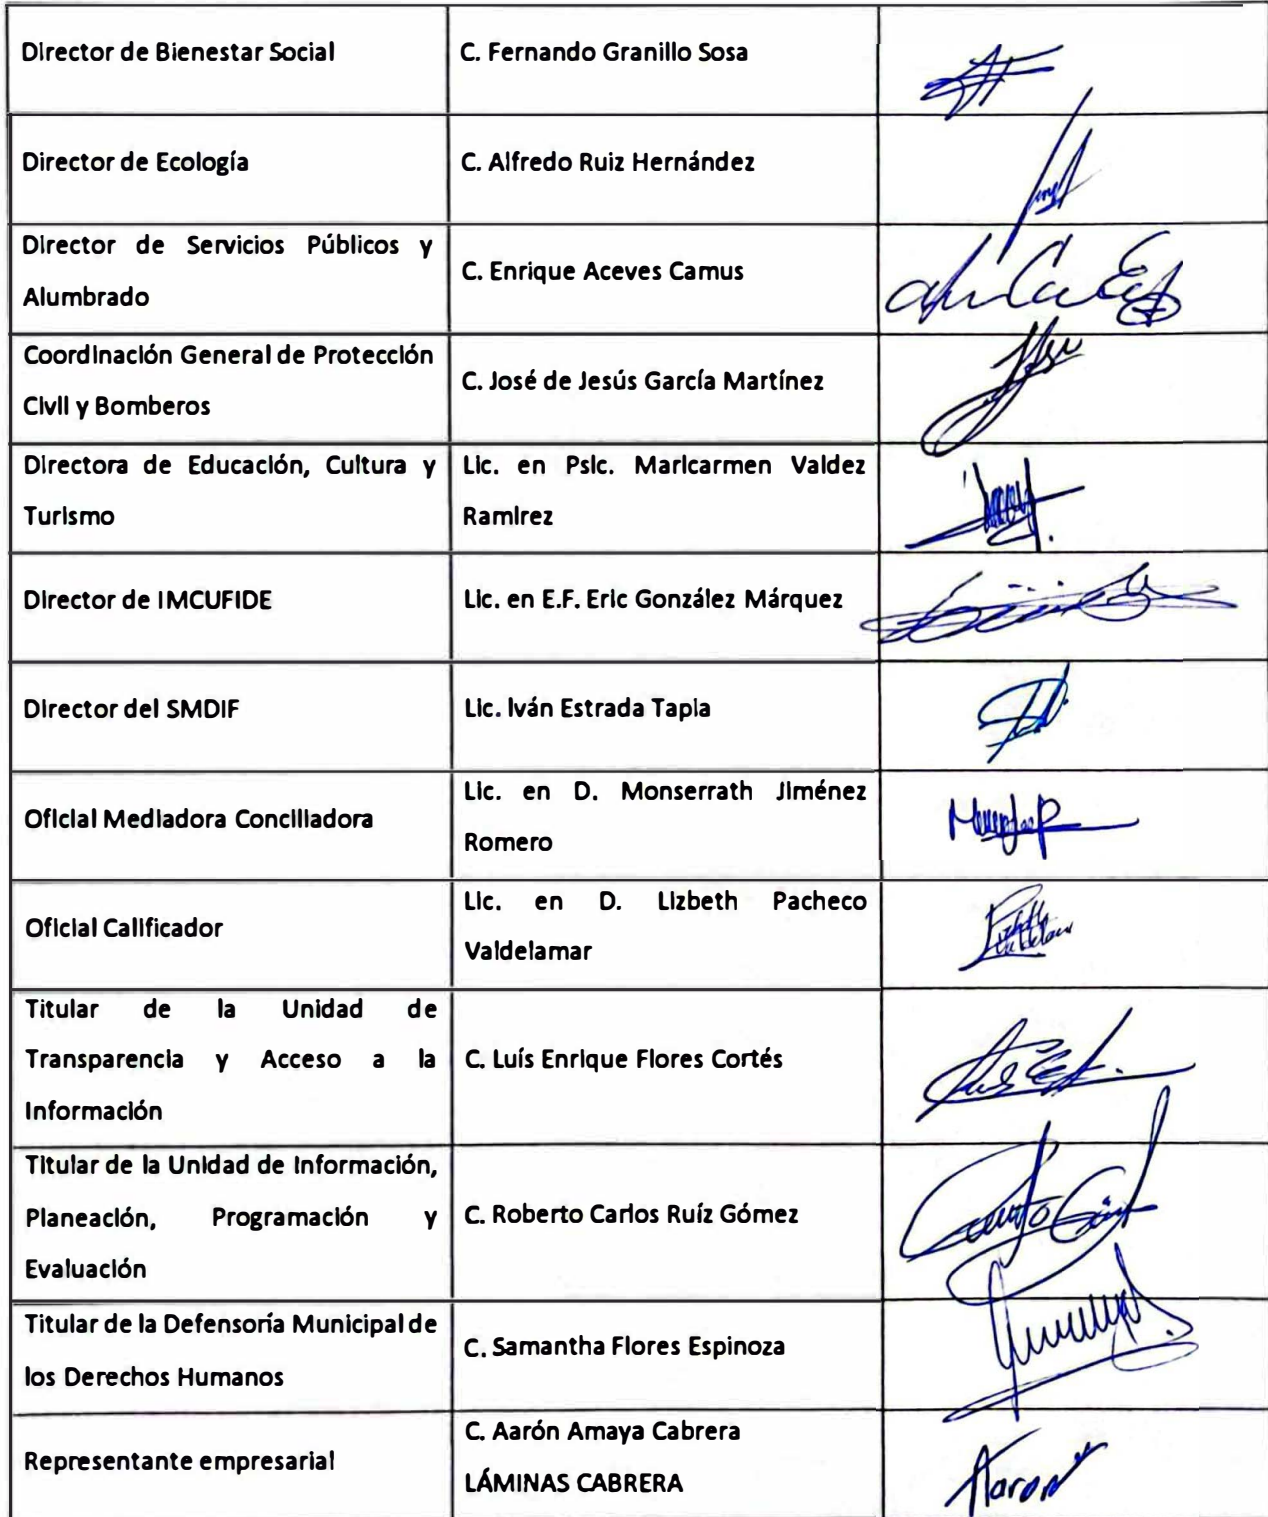 Director de Bienestar Social
C. Fernando Granillo Sosa
Director de Ecología
C. Alfredo Ruiz Hernández
Director de Servicios Públicos y
Alumbrado
C. Enrique Aceves Camus
Coordinación General de Protección
Civil y Bomberos
C. José de Jesús García Martínez
Directora de Educación, Cultura y
Turismo
Lic. en Psic. Maricarmen Valdez
Ramirez
Director de IMCUFIDE
Lic. en E.F. Eric González Márquez
Director del SMDIF
Lic. Iván Estrada Tapia
Oficial Mediadora Conciliadora
Lic. en D. Monserrath Jiménez
Romero
Oficial Calificador
Lic. en D. Lizbeth Pacheco
Valdelamar
Titular de la Unidad de
Transparencia y Acceso a la
Información
C. Luís Enrique Flores Cortés
Titular de la Unidad de Información,
Planeación, Programación y
Evaluación
C. Roberto Carlos Ruíz Gómez
Titular de la Defensoría Municipal de
los Derechos Humanos
C. Samantha Flores Espinoza
Representante empresarial
C. Aarón Amaya Cabrera
LÁMINAS CABRERA
Aaron